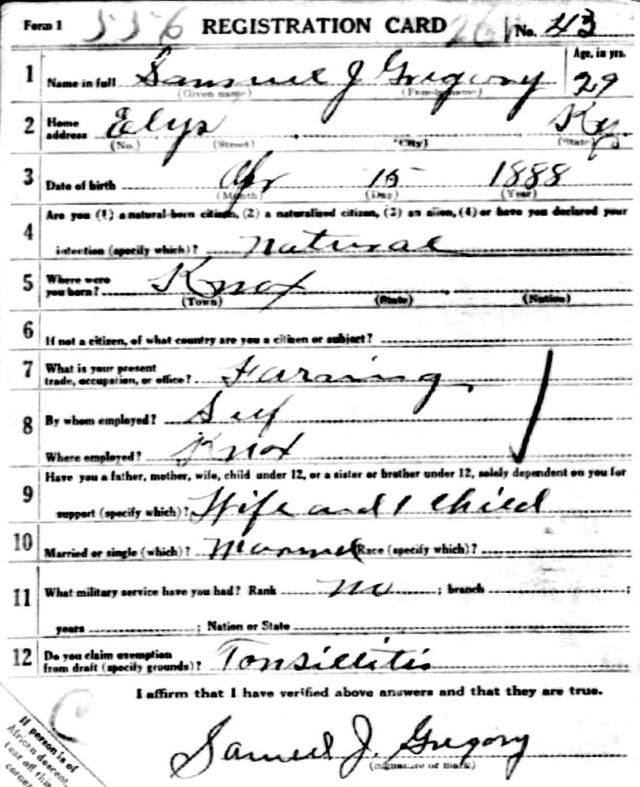 Form 1 556 REGISTRATION CARD No. 43
1 Name in full Samuel J Gregory Age, in yrs. 29
(Given name) (Family name)
2 Home address Elys Ky
(No.) (Street) (City) (State)
3 Date of birth Apr 15 1888
(Month) (Day) (Year)
4 Are you (1) a natural-born citizen, (2) a naturalized citizen, (3) an alien, (4) or have you declared your
intention (specify which)? Natural
5 Where were you born? Knox
(Town) (State) (Nation)
6 If not a citizen, of what country are you a citizen or subject?
7 What is your present trade, occupation, or office? Farming
8 By whom employed? Self
Where employed? Knox
9 Have you a father, mother, wife, child under 12, or a sister or brother under 12, solely dependent on you for
support (specify which)? Wife and 1 child
10 Married or single (which)? Married Race (specify which)?
11 What military service have you had? Rank no ; branch ;
years ; Nation or State
12 Do you claim exemption from draft (specify grounds)? Tonsillitis
I affirm that I have verified above answers and that they are true.
Samuel J. Gregory
(Signature or mark)
If person is of
African descent,
tear off this
corner
C